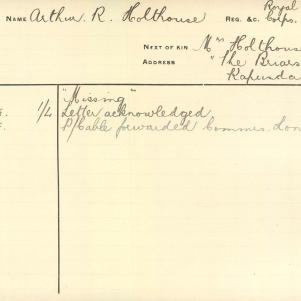 Royal
NAME Arthur R. Holthouse REG. &C. Corps.
NEXT OF KIN Mrs Holthous
ADDRESS "The Briars
Kapunda
"Missing"
1/4 Letter acknowledged.
P/Cable forwarded Commrs. Lon